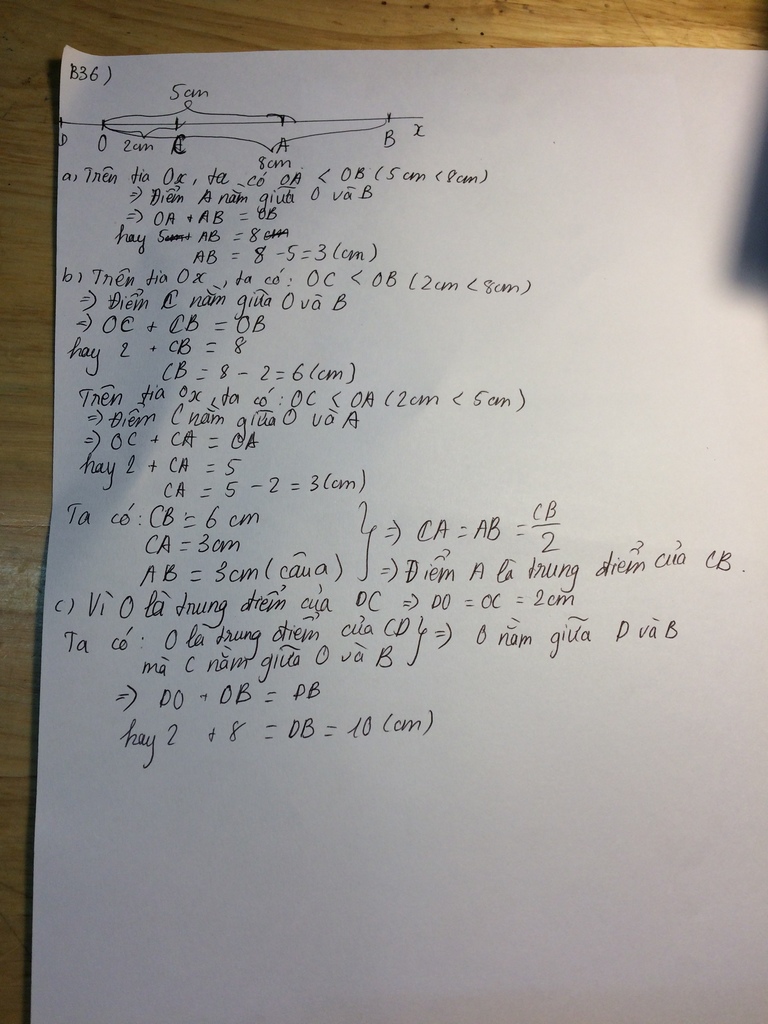 B36)
5cm
D O 2cm C A B x
8cm
a, Trên tia Ox, ta có OA < OB (5cm < 8cm)
=> Điểm A nằm giữa O và B
=> OA + AB = OB
hay 5cm + AB = 8cm
AB = 8 - 5 = 3 (cm)
b) Trên tia Ox, ta có: OC < OB (2cm < 8cm)
=> Điểm C nằm giữa O và B
=> OC + CB = OB
hay 2 + CB = 8
CB = 8 - 2 = 6 (cm)
Trên tia Ox, ta có: OC < OA (2cm < 5cm)
=> Điểm C nằm giữa O và A
=> OC + CA = OA
hay 2 + CA = 5
CA = 5 - 2 = 3 (cm)
Ta có: CB = 6 cm
CA = 3cm
AB = 3cm (câu a)
} => CA = AB = CB/2
=> Điểm A là trung điểm của CB.
c) Vì O là trung điểm của DC => DO = OC = 2cm
Ta có: O là trung điểm của CD } => O nằm giữa D và B
mà C nằm giữa O và B
=> DO + OB = DB
hay 2 + 8 = DB = 10 (cm)